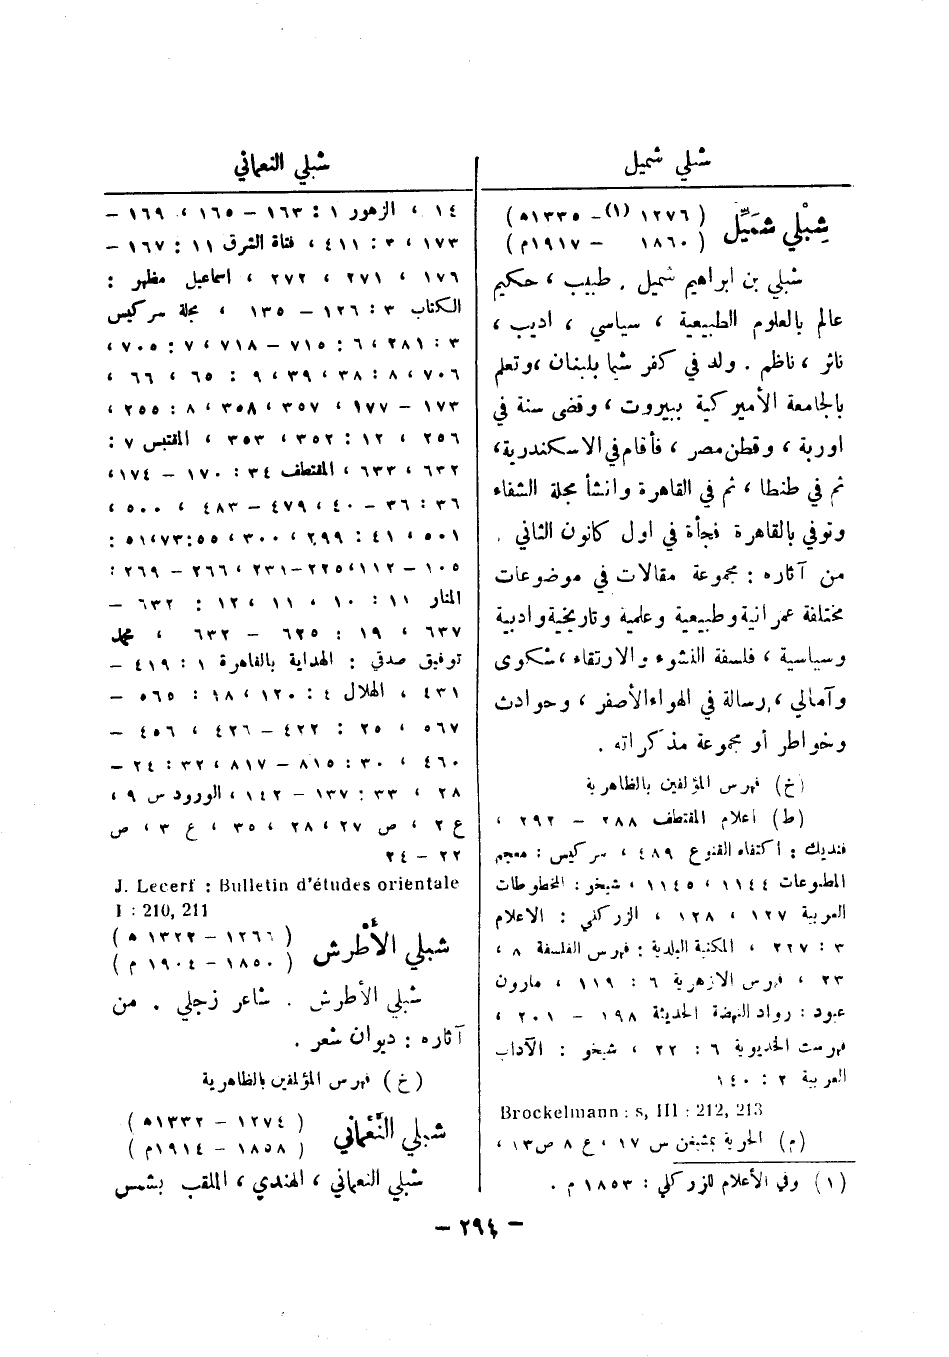 شبلي شميل
شِبْلي شمَيِّل ( ١٢٧٦ (١) – ١٣٣٥ ه )
( ١٨٦٠ – ١٩١٧ م )
شبلي بن ابراهيم شميل . طبيب ، حكيم
عالم بالعلوم الطبيعية ، سياسي ، اديب ،
ناثر ، ناظم . ولد في كفر شيما بلبنان ، وتعلم
بالجامعة الأميركية ببيروت ، وقضى سنة في
اوربة ، وقطن مصر ، فأقام في الاسكندرية ،
ثم في طنطا ، ثم في القاهرة وانشأ مجلة الشفاء
وتوفي بالقاهرة فجأة في اول كانون الثاني .
من آثاره : مجموعة مقالات في موضوعات
مختلفة عمرانية وطبيعية وعلمية وتاريخية وادبية
وسياسية ، فلسفة النشوء والارتقاء ، شكوى
وآمالي ، رسالة في الهواء الأصفر ، وحوادث
وخواطر أو مجموعة مذكراته .
(خ) فهرس المؤلفين بالظاهرية
(ط) اعلام المقتطف ٢٨٨ – ٢٩٢ ،
فنديك : اكتفاء القنوع ٤٨٩ ، سركيس : معجم
المطبوعات ١١٤٤ ، ١١٤٥ ، شيخو : المخطوطات
العربية ١٢٧ ، ١٢٨ ، الزركلي : الاعلام
٣ : ٢٢٧ ، المكتبة البلدية : فهرس الفلسفة ٨ ،
٢٣ ، فهرس الازهرية ٦ : ١١٩ ، مارون
عبود : رواد النهضة الحديثة ١٩٨ – ٢٠١ ،
فهرست الخديوية ٦ : ٢٢ ، شيخو : الآداب
العربية ٢ : ١٤٠
Brockelmann : s, III : 212, 213
(م) الحرية بمشيغن س ١٧ ، ع ٨ ص ١٣ ،
(١) وفي الأعلام للزركلي : ١٨٥٣ م .
شبلي النعماني
١٤ ، الزهور ١ : ١٦٣ – ١٦٥ ، ١٦٩ –
١٧٣ ، ٣ : ٤١١ ، فتاة الشرق ١١ : ١٦٧ –
١٧٦ ، ٢٧١ ، ٢٧٢ ، اسماعيل مظهر :
الكتاب ٣ : ١٢٦ – ١٣٥ ، مجلة سركيس
٣ : ٢٨١ ، ٦ : ٧١٥ – ٧١٨ ، ٧ : ٧٠٥ ،
٧٠٦ ، ٨ : ٣٨ ، ٣٩ ، ٩ : ٦٥ ، ٦٦ ،
١٧٣ – ١٧٧ ، ٣٥٧ ، ٣٥٨ ، ٨ : ٢٥٥ ،
٢٥٦ ، ١٢ : ٣٥٢ ، ٣٥٣ ، المقتبس ٧ :
٦٣٢ ، ٦٣٣ ، المقتطف ٣٤ : ١٧٠ – ١٧٤ ،
٣٦ : ٣٦ – ٤٠ ، ٤٧٩ – ٤٨٣ ، ٥٠٠ ،
٥٠١ ، ٤١ : ٢٩٩ ، ٣٠٠ ، ٥٥ : ٧٣ ، ٥١ :
١٠٥ – ١١٢ ، ٢٢٥ – ٢٣١ ، ٢٦٦ – ٢٦٩ :
المنار ١١ : ١٠ ، ١١ ، ١٢ : ٦٣٢ –
٦٣٧ ، ١٩ : ٦٢٥ – ٦٣٢ ، محمد
توفيق صدقي : الهداية بالقاهرة ١ : ٤١٩ –
٤٣١ ، الهلال ٤ : ١٢٠ ، ١٨ : ٥٦٥ –
٥٦٧ ، ٢٥ : ٤٢٢ – ٤٢٦ ، ٤٥٦ –
٤٦٠ ، ٣٠ : ٨١٥ – ٨١٧ ، ٣٢ : ٢٤ –
٢٨ ، ٣٣ : ١٣٧ – ١٤٢ ، الورود س ٩ ،
ع ٢ ، ص ٢٧ ، ٢٨ ، ٣٥ ، ع ٣ ، ص
٢٢ – ٢٤
J. Lecerf : Bulletin d'études oriëntale
I : 210, 211
شبلي الأطرش ( ١٢٦٦ – ١٣٢٢ ه )
( ١٨٥٠ – ١٩٠٤ م )
شبلي الأطرش . شاعر زجلي . من
آثاره : ديوان شعر .
(خ) فهرس المؤلفين بالظاهرية
شبلي النُّعْماني ( ١٢٧٤ – ١٣٣٢ ه )
( ١٨٥٨ – ١٩١٤ م )
شبلي النعماني ، الهندي ، الملقب بشمس
– ٢٩٤ –